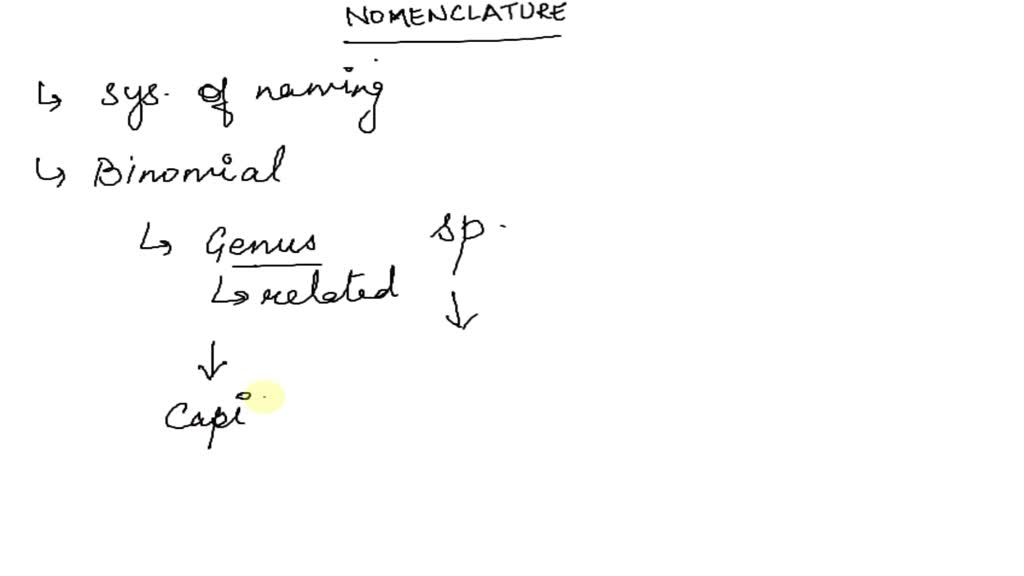 NOMENCLATURE
↳ sys. of naming
↳ Binomial
↳ Genus sp.
↳ related
↓ ↓
Capi